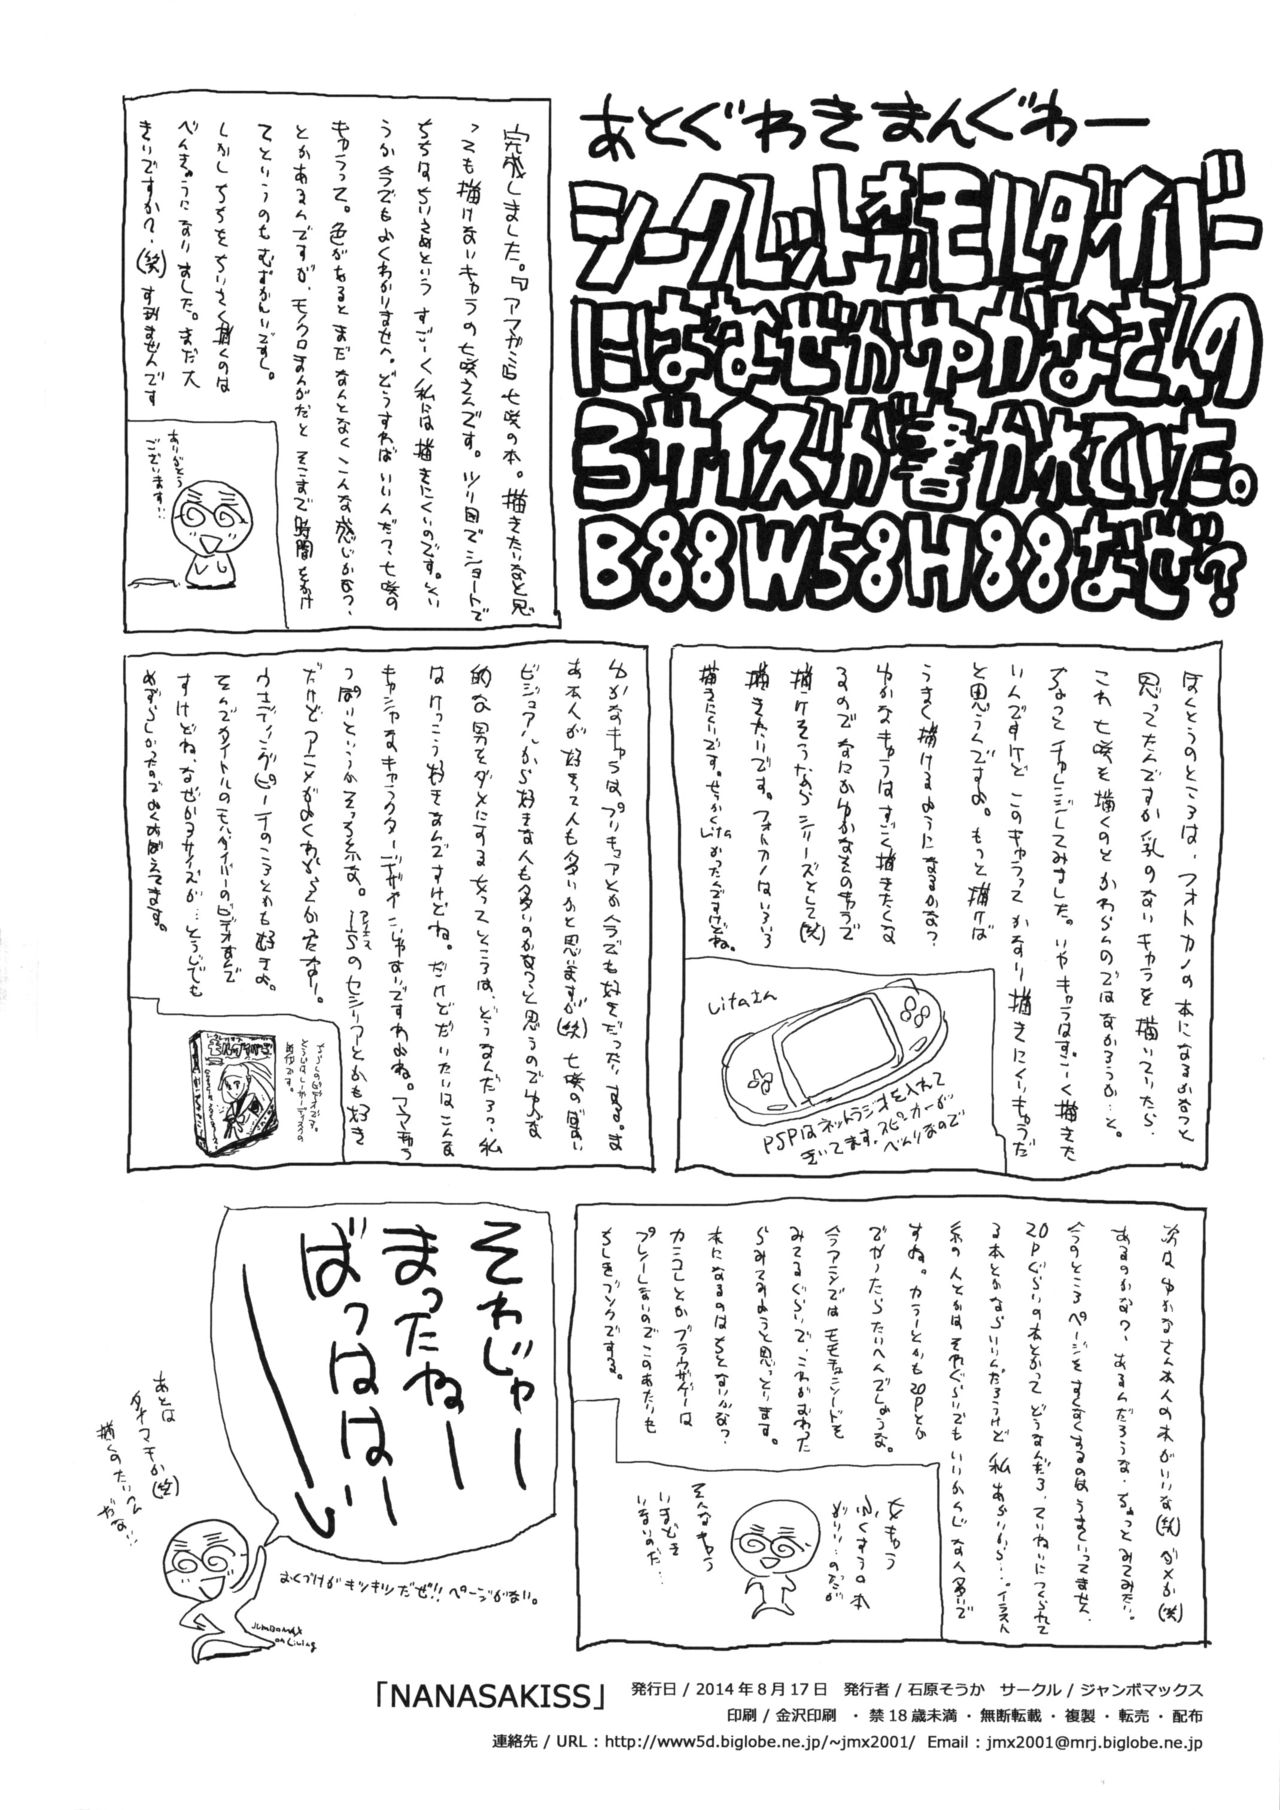 あとぐわきまんぐわー
シークレットオブモルダイバー
にはなぜかゆかなさんの
3サイズが書かれていた。
B88W58H88なぜ?
完成しました。『アマガミ』七咲の本。描きたいなと思
っても描けないキャラの七咲さんです。ツリ目でショートで
ちちはちいさめという すごーく私には描きにくいのです。とい
うか今でもよくわかりません。どうすればいいんだ?七咲の
キャラって。色があるとまだなんとなくこんな感じかなっ、
とかあるんですが、モノクロまんがだとそこまで時間をかけ
てというのもむずかしいですし。
しかしちちをちいさく描くのは
べんきょうになりました。まだ大
きいですか?(笑)すいませんです
ありがとう
ございます…
ほんとうのところは、フォトカノの本になるかなっと
思ってたんですが乳のないキャラを描いていたら、
これ七咲を描くのとかわらんのではなかろうか…と。
なってチャレンジしてみました。いやキャラはすごーく描きた
いんですけど このキャラってかなり描きにくいキャラだ
と思うんですよ。もっと描けば
うまく描けるようになるかな?
ゆかなキャラはすごく描きたくな
るのでなにかゆかなそのもので
描けそうならシリーズとして(笑)
描きたいです。フォトカノはいろいろ
描きにくいです。せっかくLitaかったんですけどね。
Litaさん
PSPはネットラジオを入れて
きいてます。スピーカーが
べんりなので
ゆかなキャラは、プリキュアとか今でも好きだったりする。ま
あ本人が好きって人も多いかと思いますが(笑)七咲のばあい
ビジュアルから好きな人も多いのかなっと思うのでゆかな
的な男をダメにする女ってところは、どうなんだろっ、私
はけっこう好きなんですけどね。だけどだいたいはこんな
キャシャなキャラクターデザインじゃないですわよね。ママキャラ
っぽいというかそっち系な。ISのセシリアとかも好き
だけどアニメがよくわからんかったなー。
ウエディングピーチのころとかも好きよ。
そんでタイトルのモルダイバーのビデオなんで
すけどね、なぜか3サイズが…とうじでも
めずらしかったのでよくおぼえてます。
次はゆかなさん本人の本がいいな(笑)ダメか(笑)
あるのかな?、あるんだろうな、ちょっとみてみたい。
今のところページをすくなくするのはうまくいってません、
20Pぐらいの本とかってどうなんだろ、ていねいにつくられて
る本とかならいいんだろうけど私あらいから…。イラスト
系の人とかはそれぐらいでもいいかんじな人多いで
すね。カラーとかも20Pとか
でかったらたいへんでしょうな。
今アニメではモモキュンソードを
みてるぐらいで、これがおわった
らみてみようと思っとります。
本になるのはちとないかなっ、
カンコレとかブラウザゲーは
プレーしないのでこのあたりも
むしきブンクでする。
女キャラ
ふくすうの本
がいい…のだが
そんなキャラ
いまどき
いないのだ…
それじゃー
まったねー
ばっははーい
あとは
タオマモか(笑)
描くのたいへん
だな…
おくづけがギリギリだぜ!!ページがない。
JUMBOMAX
on Living
「NANASAKISS」
発行日 / 2014年8月17日　発行者 / 石原そうか　サークル / ジャンボマックス
印刷 / 金沢印刷　・禁18歳未満・無断転載・複製・転売・配布
連絡先 / URL : http://www5d.biglobe.ne.jp/~jmx2001/　Email : jmx2001@mrj.biglobe.ne.jp